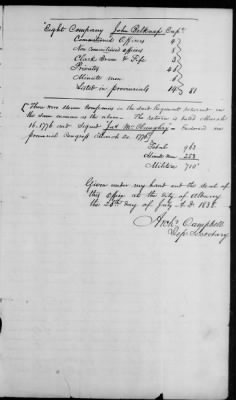 Eight Company John Belknap Capt.
Commissioned Officers
Non commissioned officers
Clark Drum & Fife 3
Privates
Minute men
Listed in provincials 81
[There were eleven Companies in the said Regiment returned in
the same manner as the above. The return is dated March
16. 1776 and signed Jas. McClaughry – Endorsed in
provincial Congress March 20. 1776]
Total 963
Minute men 253
Militia 710
Given under my hand and the seal of
this office at the city of Albany
the 25th day of July A.D. 1838.
Archd. Campbell
Dep. Secretary